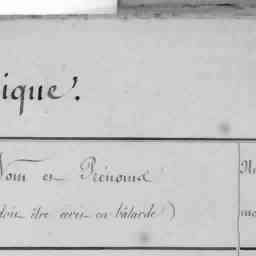 ique.
Nom et Prénoms
doit être écrit en bâtarde)